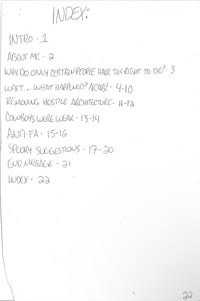 INDEX:
INTRO - 1
ABOUT ME - 2
WHY DO ONLY CERTAIN PEOPLE HAVE THE RIGHT TO DIE? - 3
WAIT... WHAT HAPPENED? ACAB! - 4-10
REMOVING HOSTILE ARCHITECTURE - 11-12
COWBOYS WERE WEAK - 13-14
ANTI FA - 15-16
SPOOKY SUGGESTIONS - 17-20
END MESSAGE - 21
INDEX - 22
22